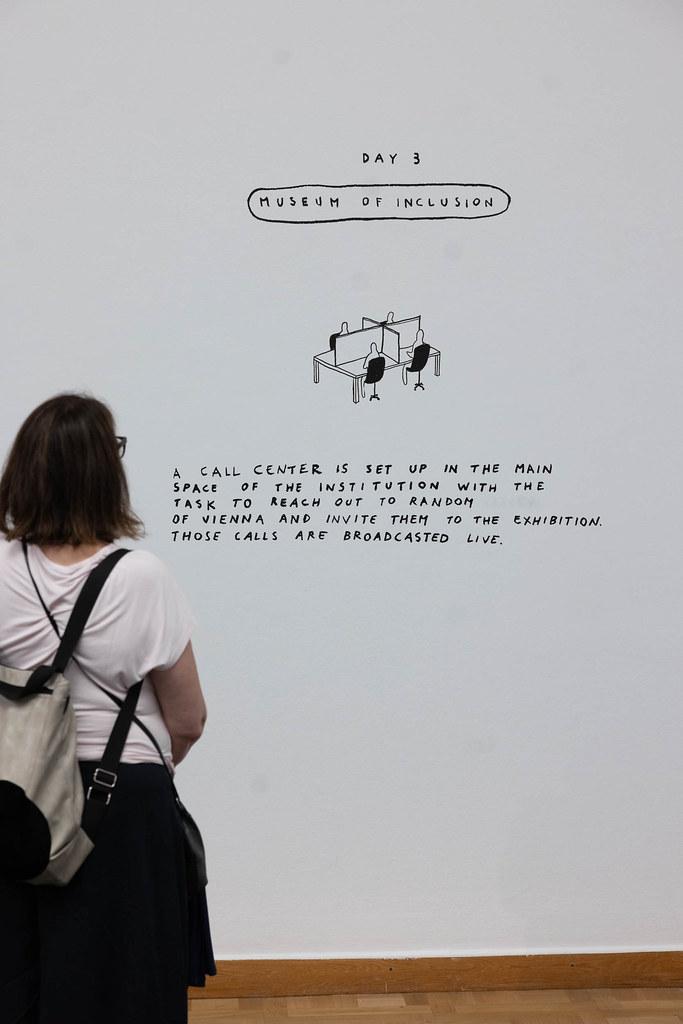 DAY 3
MUSEUM OF INCLUSION
A CALL CENTER IS SET UP IN THE MAIN
SPACE OF THE INSTITUTION WITH THE
TASK TO REACH OUT TO RANDOM
OF VIENNA AND INVITE THEM TO THE EXHIBITION.
THOSE CALLS ARE BROADCASTED LIVE.